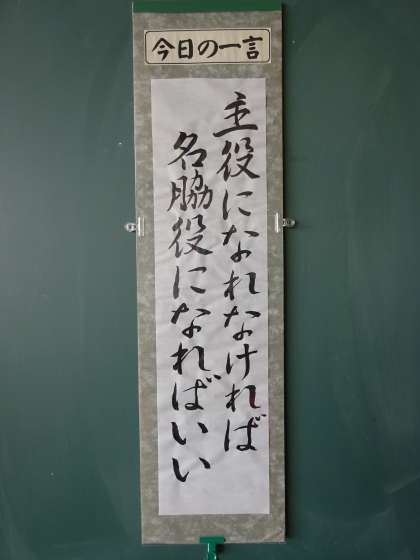 今日の一言
主役になれなければ
名脇役になればいい